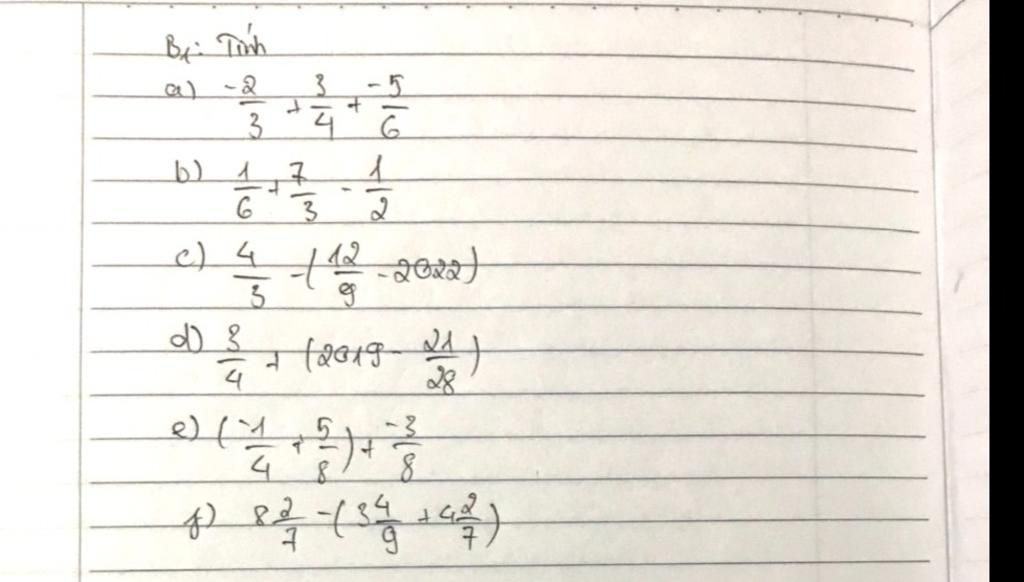 B1: Tính
a) -2/3 + 3/4 + -5/6
b) 1/6 + 7/3 - 1/2
c) 4/3 - (12/9 - 2022)
d) 3/4 + (2019 - 21/28)
e) (-1/4 + 5/8) + -3/8
f) 8 2/7 - (3 4/9 + 4 2/7)